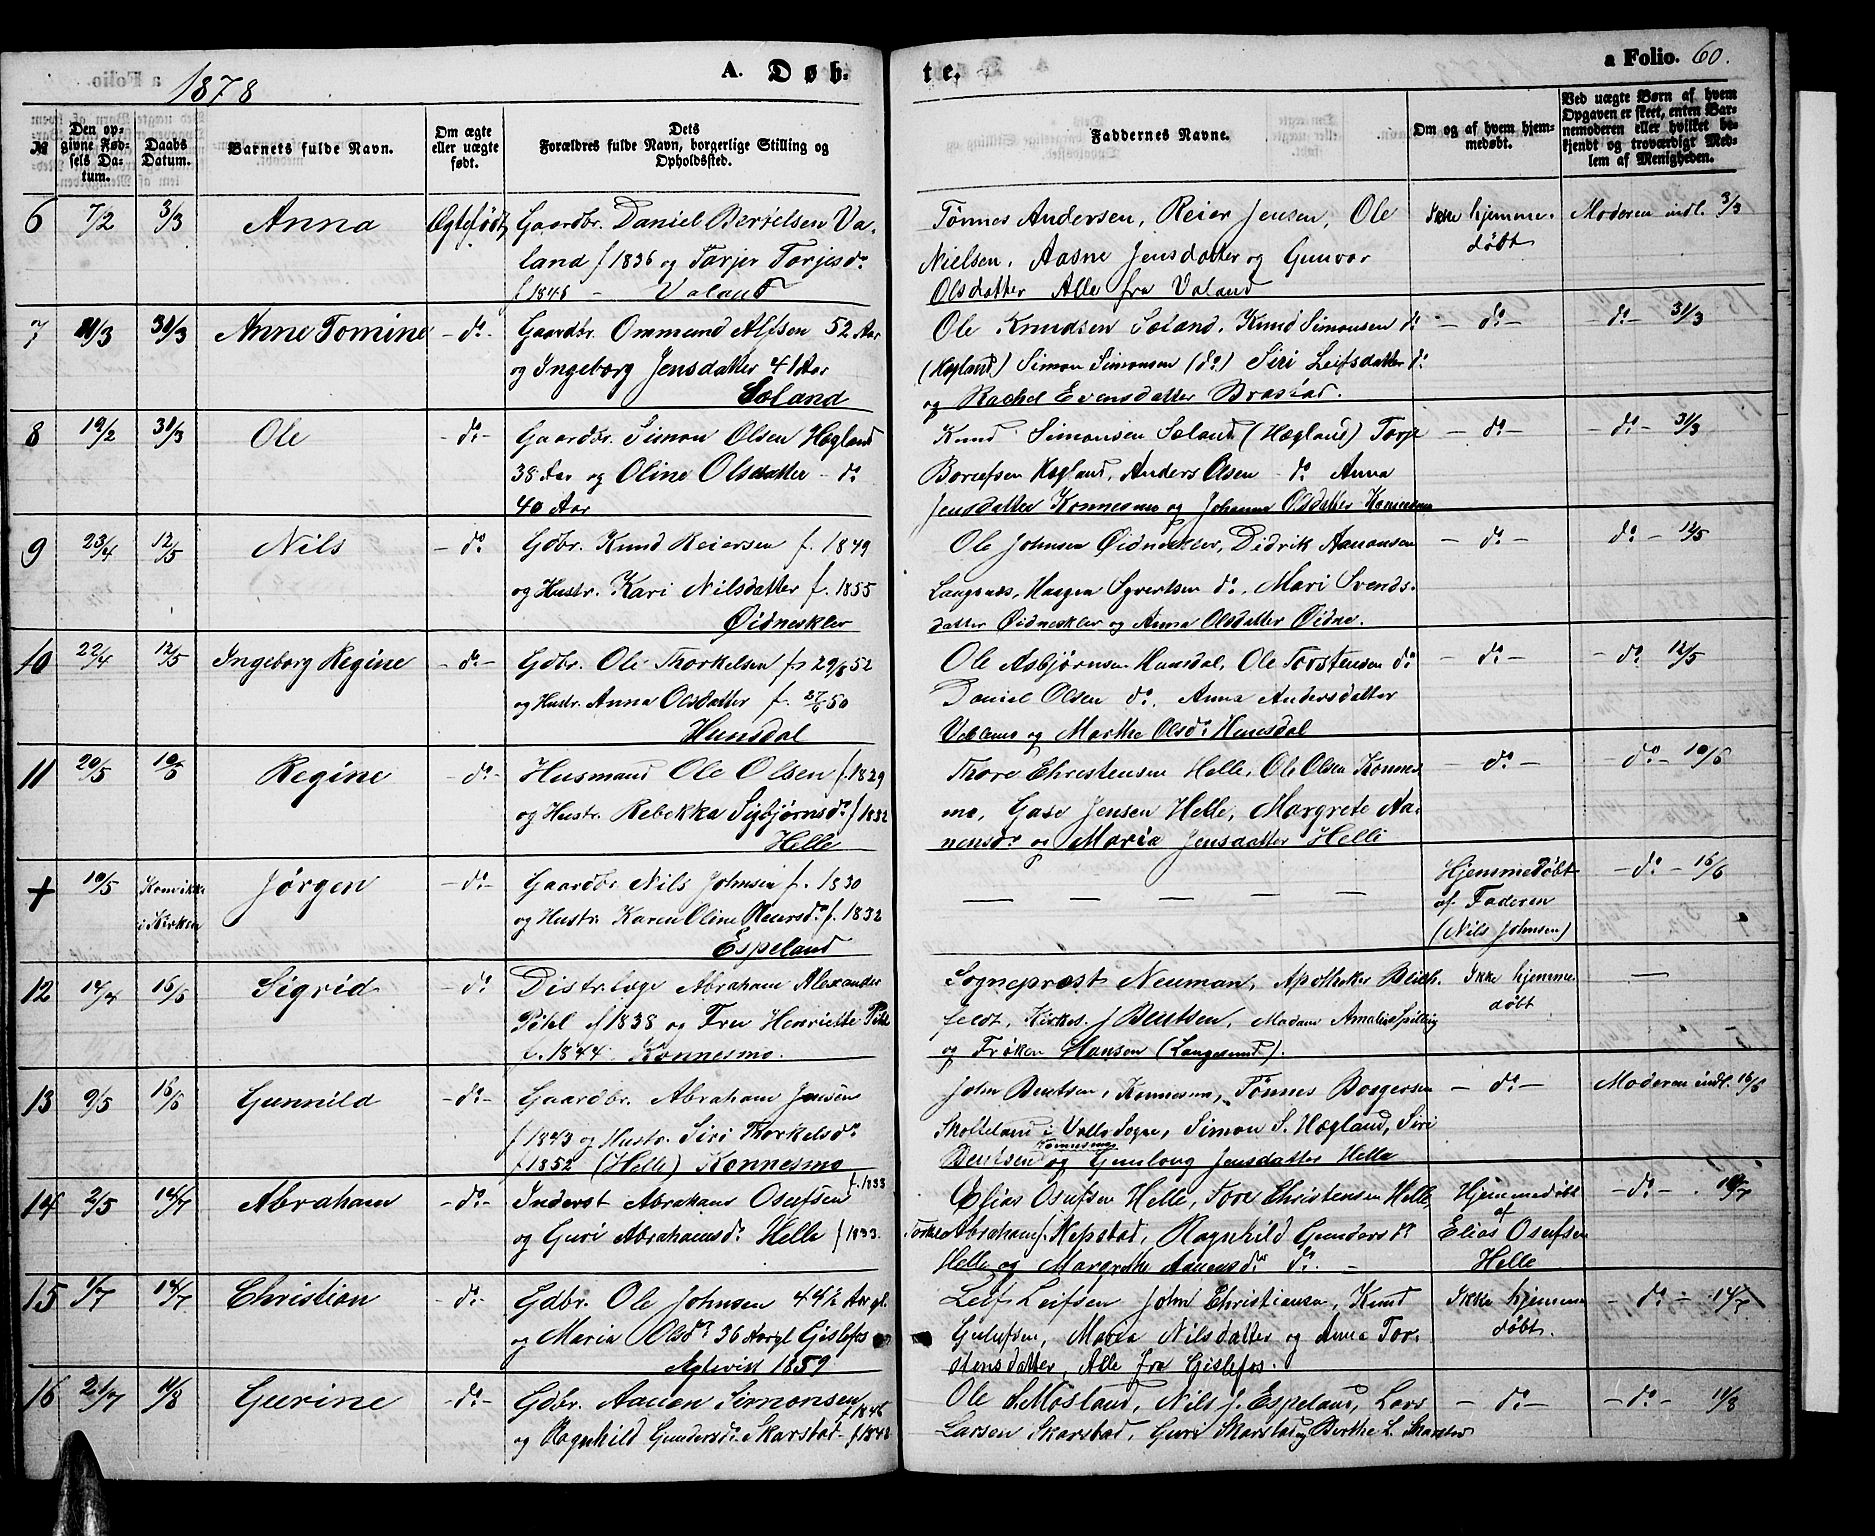 1878
A. Døb-
te.
a Folio. 60.
№
Den opgivne Fødsels Datum.
Daabs Datum.
Barnets fulde Navn.
Om ægte eller uægte født.
Dets Forældres fulde Navn, borgerlige Stilling og Opholdssted.
Faddernes Navne.
Om og af hvem hjemmedøbt.
Ved uægte Børn af hvem Opgaven er skeet, enten Barnemoderen eller hvilket bekjendt og troværdigt Medlem af Menigheden.
6 7/2 3/3 Anna Ægtefødt Gaardbr. Daniel Bertelsen Va-
land f 1836 og Torjer Torjesd.
f 1846 - Valand
Tønnes Andersen, Reier Jensen, Ole
Nielsen, Aasne Jensdatter og Gunvor
Olsdatter Alle fra Valand
Ikke hjemme-
døbt
Moderen indl. 3/3
7 11/3 31/3 Anne Tomine - do - Gaardbr. Ommund Alfsen 52 Aar
og Ingeborg Jensdatter 41 Aar
Soland
Ole Knudsen Soland, Knud Simonsen do
(Høgland) Simon Simonsen (do) Siri Leifsdatter do
og Rachel Evensdatter Brastad.
- do -
- do - 31/3
8 19/2 31/3 Ole - do - Gaardbr. Simon Olsen Høgland
38 Aar og Oline Olsdatter - do
40 Aar
Knud Simonsen Soland (Høgland) Torje
Høgland, Anders Olsen - do Anna
Jensdatter Konnesmo og Johanne Olsdatter Konnesmo
- do -
- do - 31/3
9 23/4 12/5 Nils - do. Gdbr. Knud Reiersen f. 1849
og Hustr. Kari Nilsdatter f. 1855
Øidneskler
Ole Johnsen Øidneskler, Didrik Aanonsen
Langnæs, Haagen Syvertsen do, Mari Svends-
datter Øidneskler og Anna Olsdatter Øidne.
- do -
do - 12/5
10 22/4 12/5 Ingeborg Regine - do - Gdbr. Ole Thorkelsen f. 29/8 52
og Hustr. Anna Olsdatter f. 50
Hunsdal
Ole Asbjørnsen Hunsdal, Ole Torstensen do
Daniel Olsen do. Anna Andersdatter
og Marthe Olsd. Hunsdal
- do -
- do. 12/5
11 20/5 10/6 Regine - do - Husmand Ole Olsen f. 1829
og Hustr. Rebekka Sigbjørnsd. f 1832
Helle
Thore Christensen Helle, Ole Olsen Konnes-
mo, Gase Jensen Helle, Margrete Aa-
nensd. og Maria Jensdatter Helle
- do -
- do - 10/6
+ 10/5 Kom ikke
i Kirken
Jørgen - do - Gaardbr. Nils Johnsen f. 1830
og Hustr. Karen Oline Reiersd. f. 1832
Espeland
— — — —
Hjemmedøbt
af Faderen
(Nils Johnsen)
- do - 16/6
12 17/4 16/6 Sigrid - do Distr.læge Abraham Alexander
Pihl f 1838 og Fru Henriette Pihl
f. 1844. Konnesmo.
Sogneprest Neuman, Apotheker Beich-
feldt, Kirkes. J Bentsen, Madam Amalie Spilling
og Frøken Hansen (Langesund).
Ikke hjemme-
døbt
—
13 9/5 16/6 Gunnild - do - Gaardbr. Abraham Jensen
f 1843 og Hustr. Siri Thorkelsd.
f. 1852 (Helle) Konnesmo
John Bentsen, Konnesmo, Tønnes Borgersen
Skolteland i Valle Sogn, Simon S. Høgland, Siri
Konnesmo
Bentsen og Gunlaug Jensdatter Helle
- do -
Moderen indl. 16/6
14 2/5 14/7 Abraham - do - Inderst Abraham Osufsen f. 1833
og Guri Abrahamsd. Helle f 1833.
Elias Osufsen Helle, Tore Christensen Helle,
Torkel Abrahamsen Nepstad, Ragnhild Gundersd.
Helle og Margrethe Aanensd. do. -
Hjemmedøbt
af
Elias Osufsen
Helle
- do - 14/7
15 1/7 14/7 Christian - do - Gdbr. Ole Johnsen 44½ Aar gl.
og Maria Olsd. 36 Aar gl Gislefos
Agtevied 1859
Leif Leifsen John Christiansen, Knud
Gulufsen, Maria Nilsdatter og Anna Tor-
stensdatter, Alle fra Gislefos.
Ikke hjemme
døbt.
- do - 14/7
16 21/7 11/8 Gurine - do - Gdbr. Aanen Simonsen f 1846
og Ragnhild Gundersd. Skarstad - f 1848
Ole Mosland, Nils J. Espeland, Lars
Larsen Skarstad, Guri Skarstad og Berthe L. Skarstad
- do -
- do - 11/8